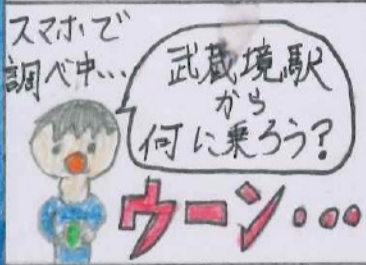 スマホで
調べ中…
武蔵境駅
から
何に乗ろう?
ウーン…